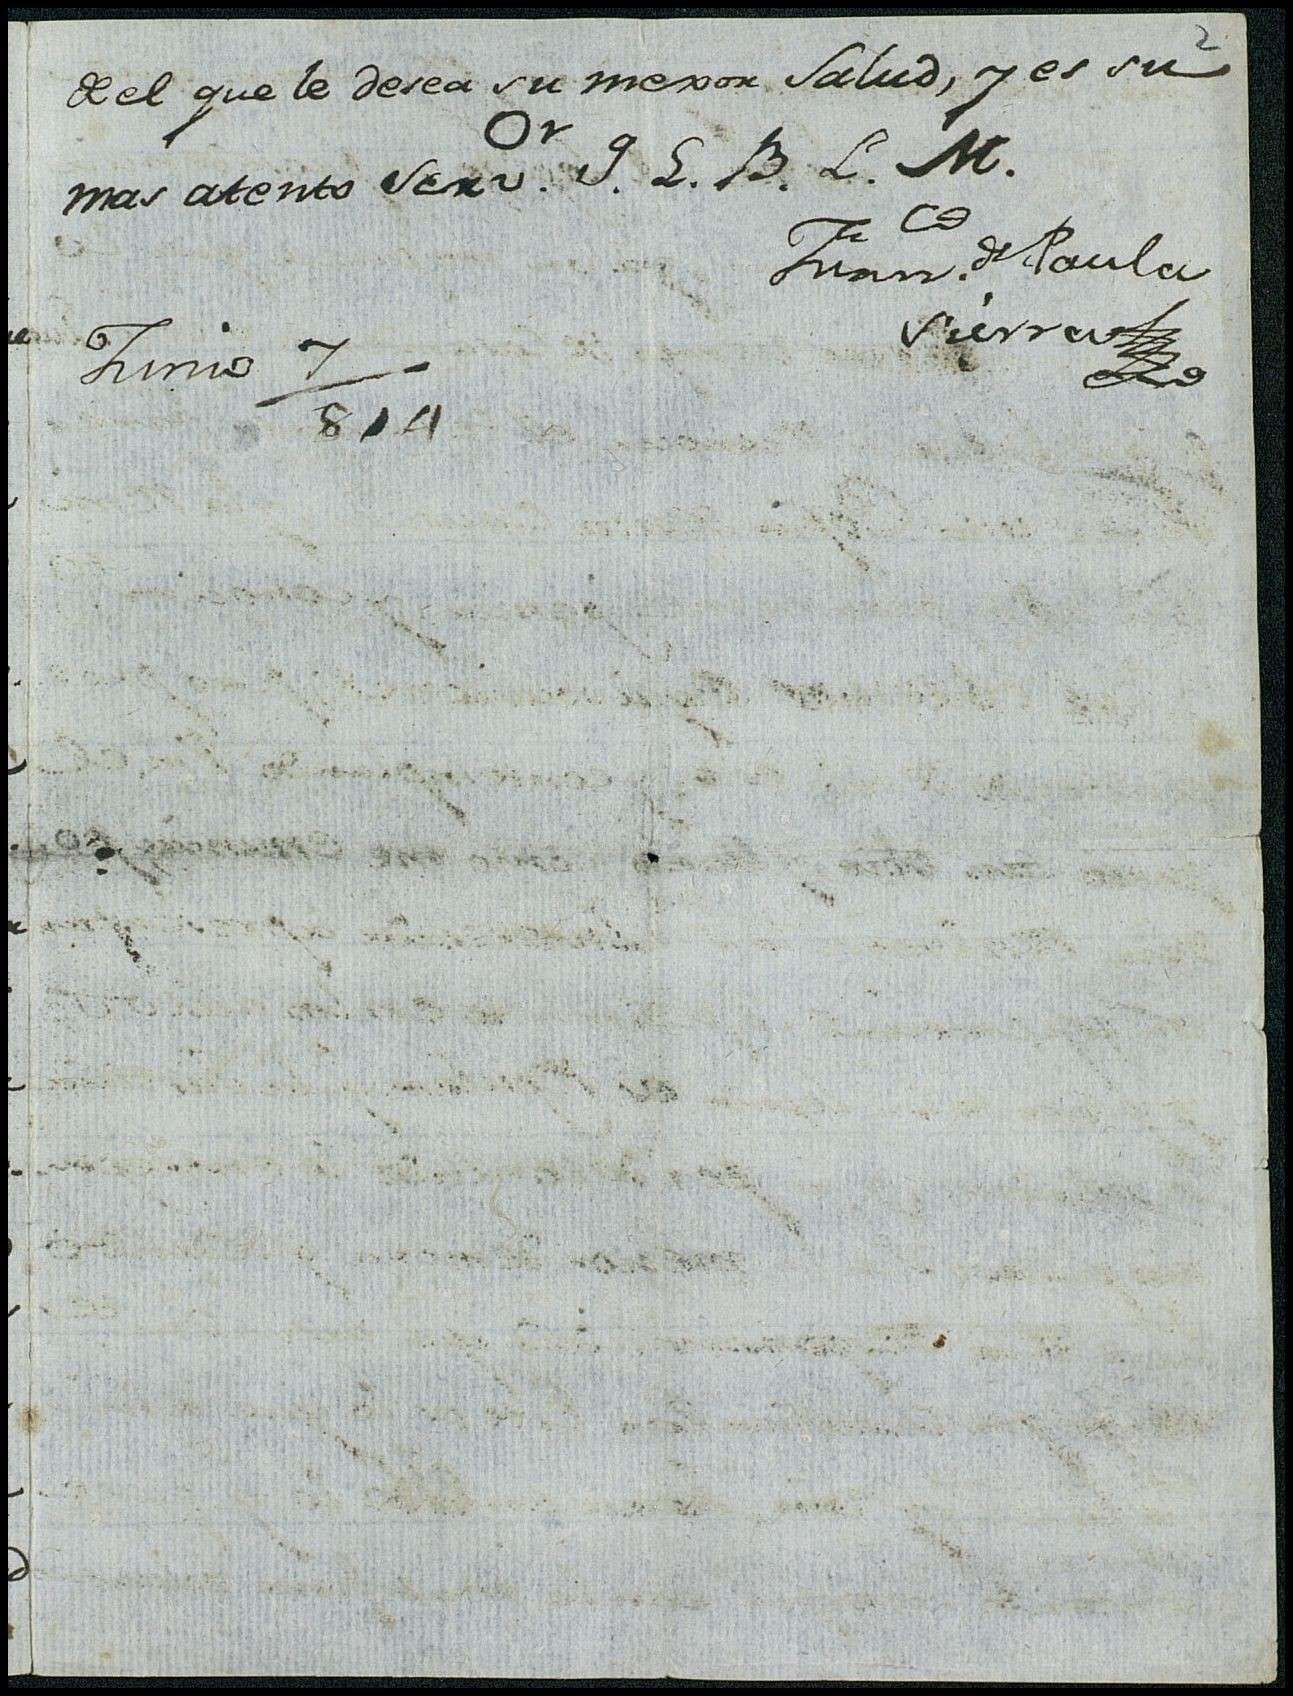 2
del que le desea su mexor Salud, y es su
mas atento Serv.or Q. S. B. L. M.
Fran.co de Paula
Sierra
Junio 7
814